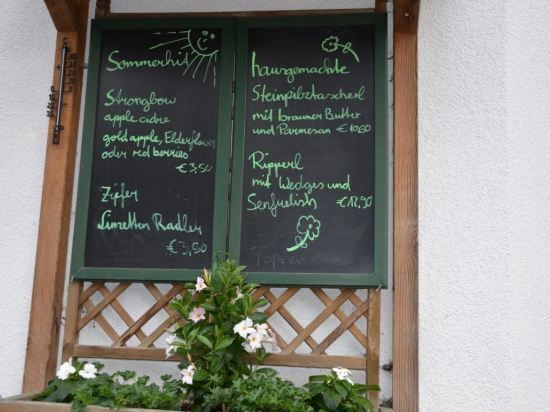 Sommerhit
Strongbow
apple cidre
gold apple, Elderflower
oder red berries
€ 3,50
Zipfer
Limetten Radler
€ 3,50
hausgemachte
Steinpilztascherl
mit brauner Butter
und Parmesan € 10,60
Ripperl
mit Wedges und
Senfrelish € 12,90